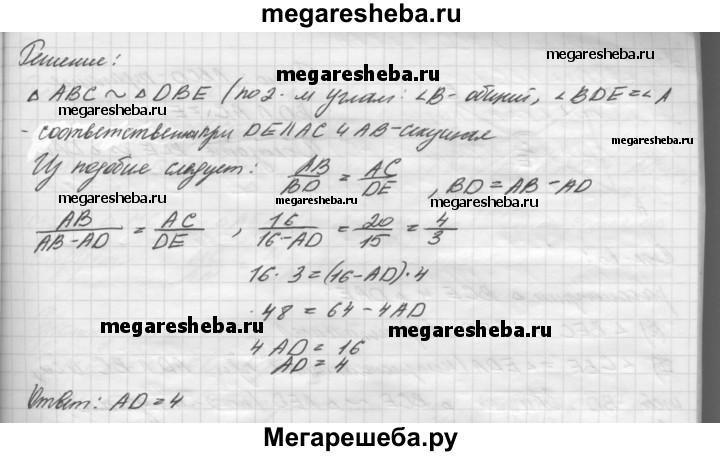 megaresheba.ru
Решение:
megaresheba.ru
megaresheba.ru
△ ABC ~ △ DBE (по 2-м углам: ∠B - общий, ∠BDE = ∠A
- соответственни при DE || AC и AB - секущая
megaresheba.ru
Из подобие следует: AB/BD = AC/DE, BD = AB - AD
megaresheba.ru
megaresheba.ru
AB/(AB-AD) = AC/DE, 16/(16-AD) = 20/15 = 4/3
16 · 3 = (16-AD) · 4
48 = 64 - 4AD
megaresheba.ru
megaresheba.ru
4AD = 16
AD = 4
Ответ: AD = 4
Мегарешеба.ру